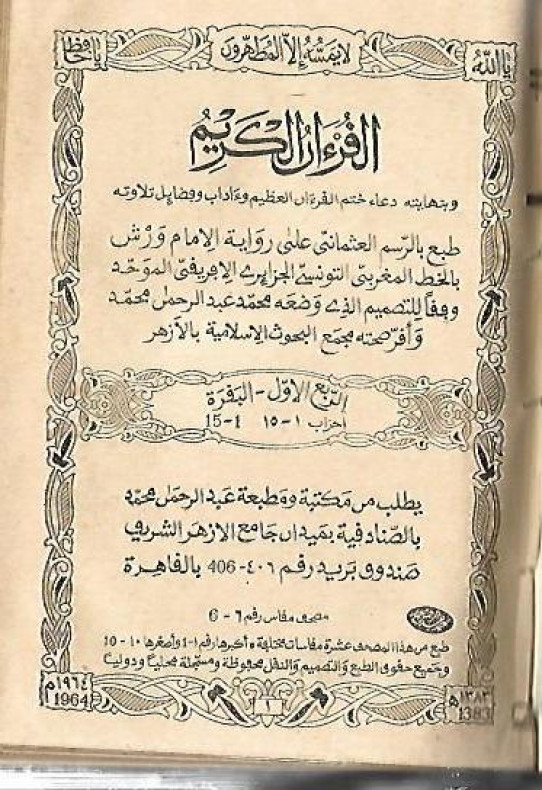 يا الله
لا يمسه إلا المطهرون
يا حافظ
القرءان الكريم
وبنهايته دعاء ختم القرءان العظيم وءاداب وفضايل تلاوته
طبع بالرسم العثماني على رواية الإمام ورش
بالخط المغربي التونسي الجزايري الإفريقي الموحد
وفقا للتصميم الذي وضعه محمد عبد الرحمن محمد
وأقر صحته مجمع البحوث الإسلامية بالأزهر
الربع الأول - البقرة
أحزاب ١ - ١٥ 1-15
يطلب من مكتبة ومطبعة عبد الرحمن محمد
بالصنادقية بميدان جامع الأزهر الشريف
صندوق بريد رقم ٤٠٦ - 406 بالقاهرة
مصحف مقاس رقم ٦ - 6
طبع من هذا المصحف عشرة مقاسات مختلفة أكبرها رقم ١-1 وأصغرها ١٠ - 10
وجميع حقوق الطبع والتصميم والنقل محفوظة ومسجلة محليا ودوليا
١٣٨٣ه
1383
١
١٩٦٤م
1964